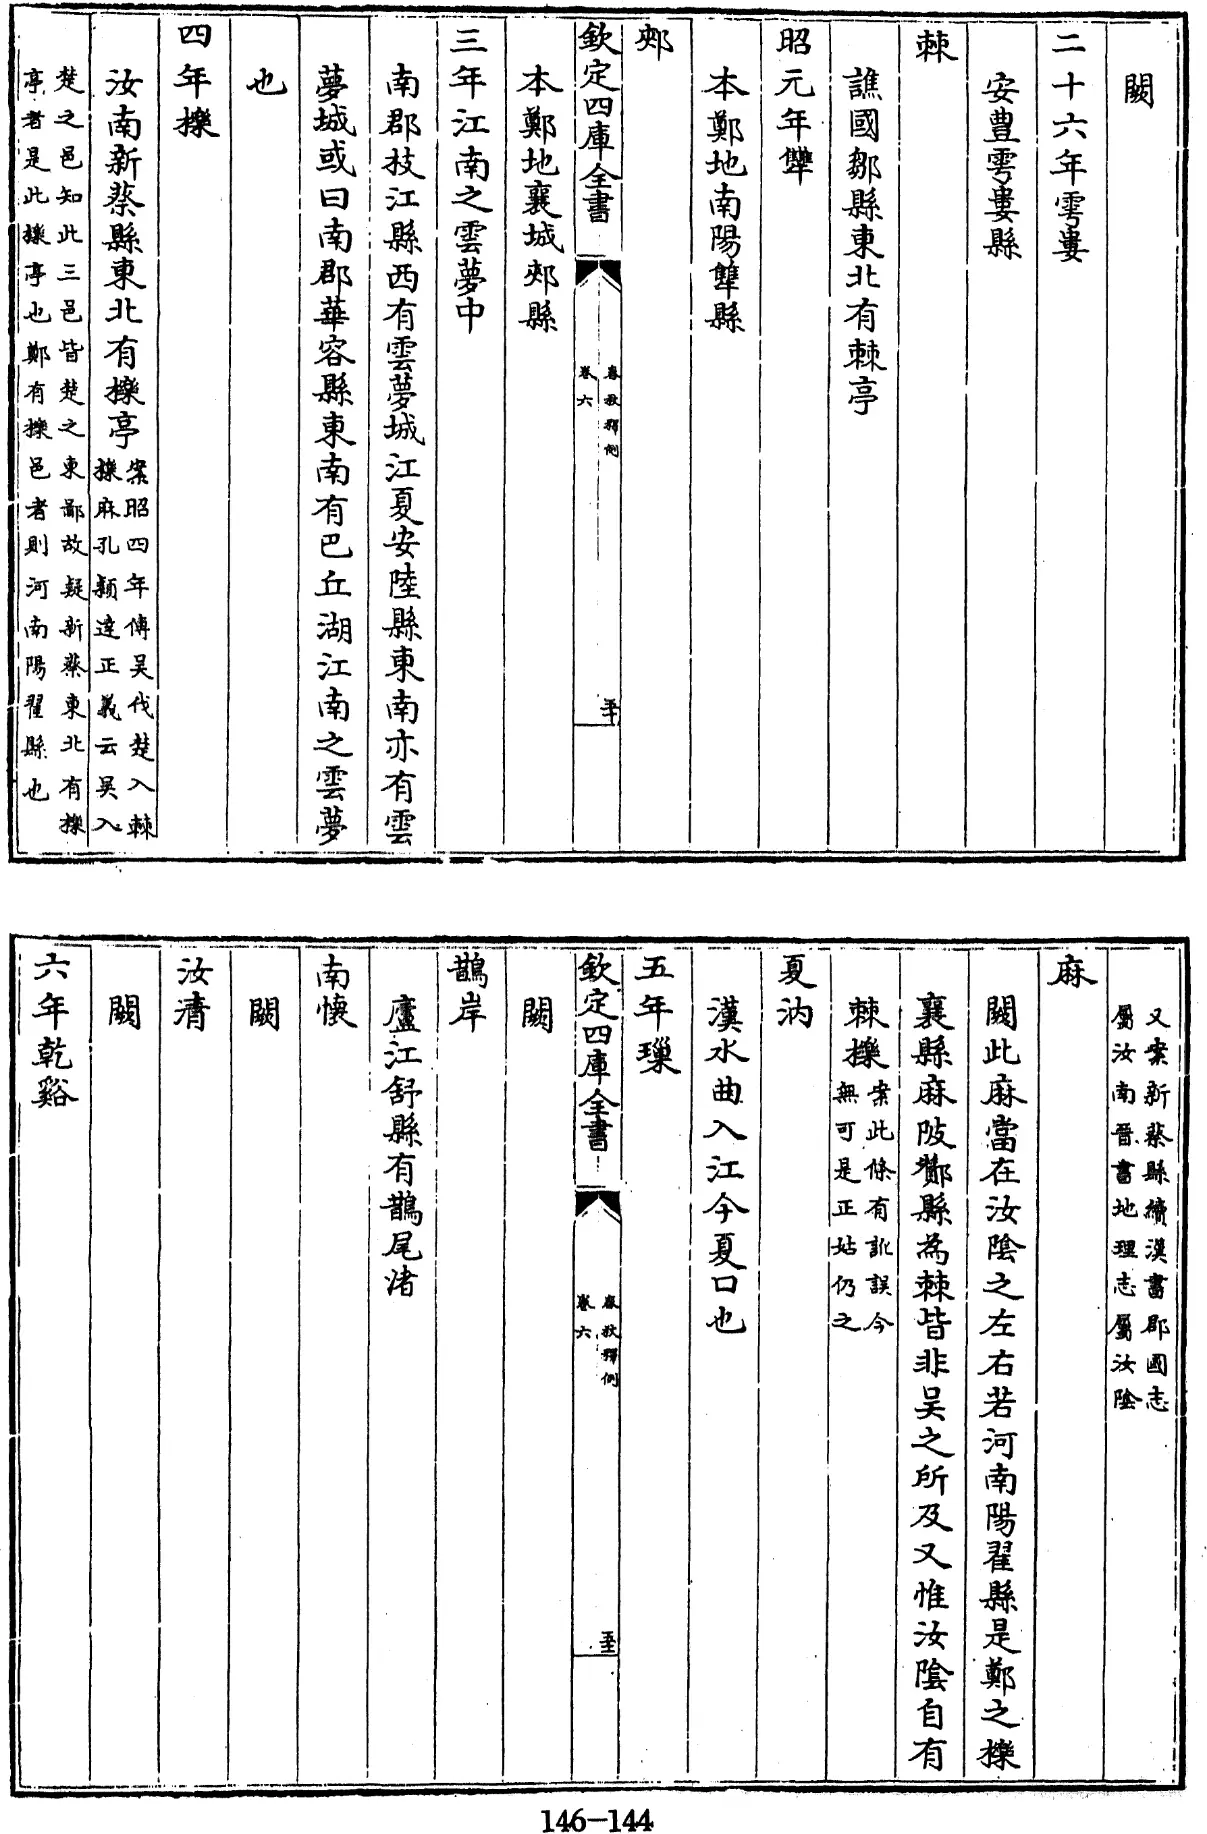 闕
二十六年雩婁
安豊雩婁縣
棘
譙國鄒縣東北有棘亭
昭元年犨
本鄭地南陽犨縣
郟
欽定四庫全書
春秋釋例
卷六
五十
本鄭地襄城郟縣
三年江南之雲夢中
南郡枝江縣西有雲夢城江夏安陸縣東南亦有雲
夢城或曰南郡華容縣東南有巴丘湖江南之雲夢
也
四年櫟
汝南新蔡縣東北有櫟亭
案昭四年傳吴伐楚入棘
櫟麻孔穎達正義云吳入
楚之邑知此三邑皆楚之東鄙故疑新蔡東北有櫟
亭者是此櫟亭也鄭有櫟邑者則河南陽翟縣也
又案新蔡縣續漢書郡國志
屬汝南晉書地理志屬汝陰
麻
闕此麻當在汝陰之左右若河南陽翟縣是鄭之櫟
襄縣麻陂酇縣為棘皆非吴之所及又惟汝陰自有
棘櫟
案此條有訛誤今
無可是正姑仍之
夏汭
漢水曲入江今夏口也
五年璅
欽定四庫全書
春秋釋例
卷六
五十一
闕
鵲岸
廬江舒縣有鵲尾渚
南懷
闕
汝清
闕
六年乾谿
146-144